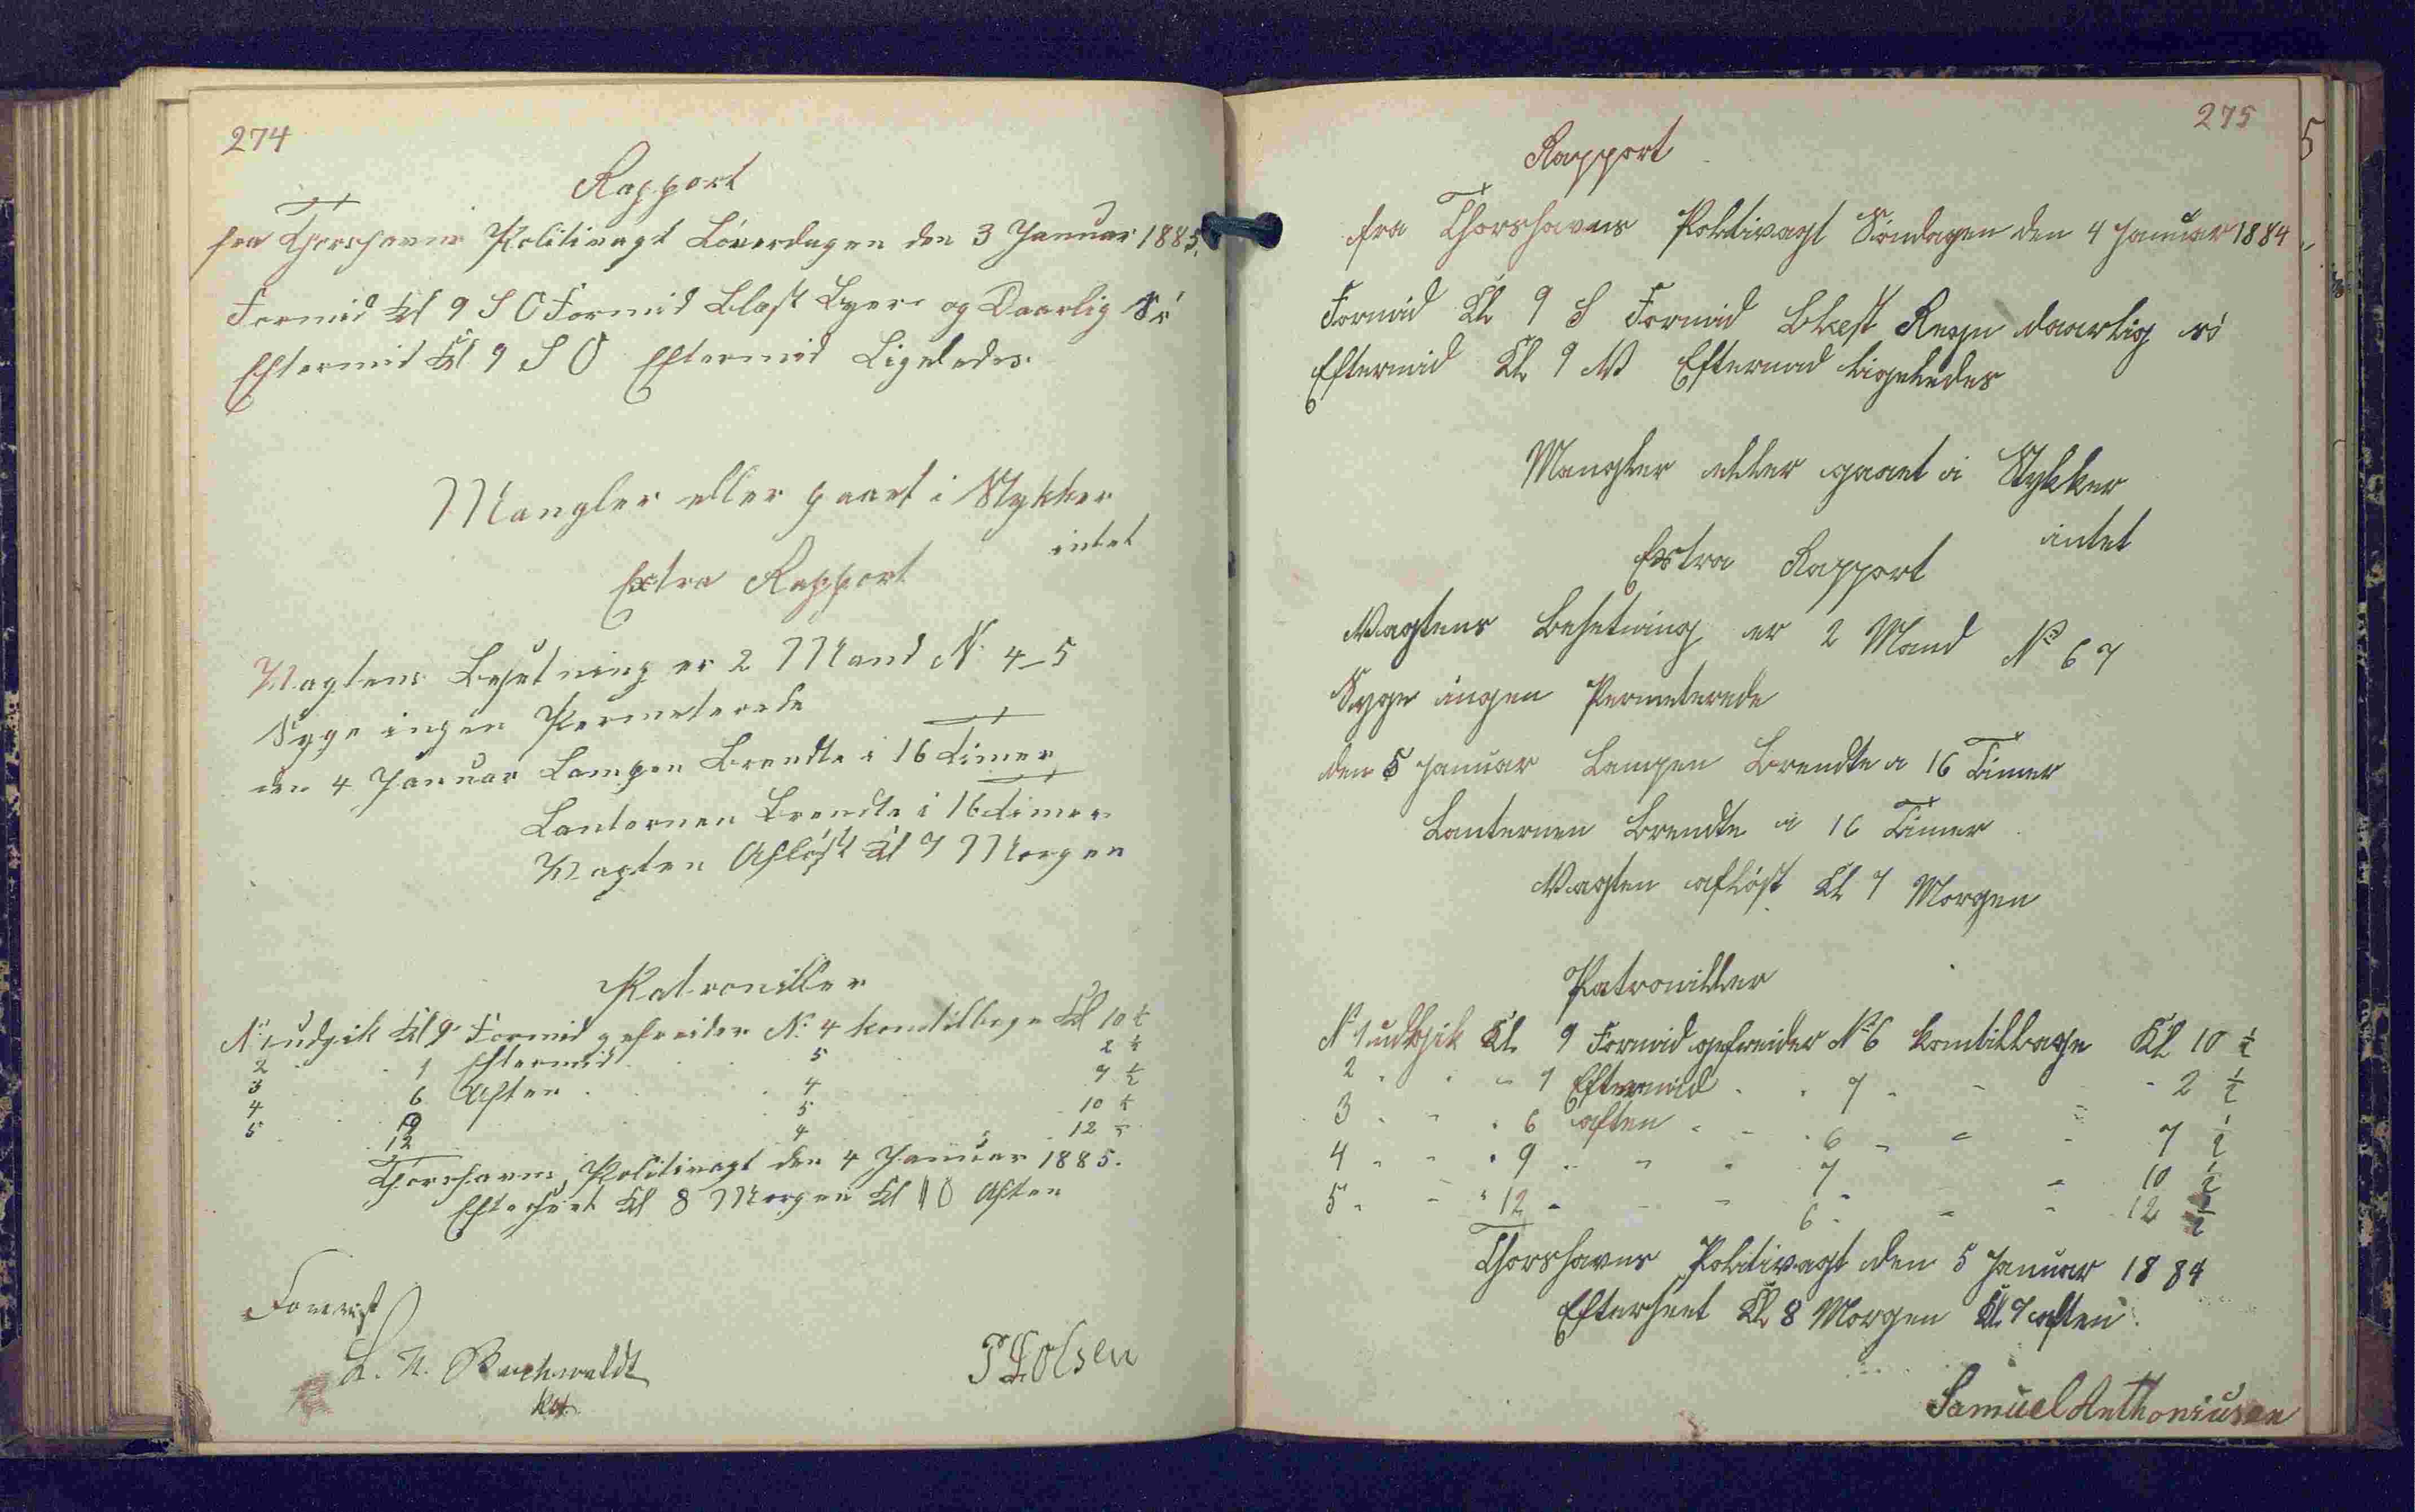 274
Rapport
fra Thorshavns Politivagt Löverdagen den 3 Januar 1885.
Formid Kl 9 S O Formid Blæst Byer og Daarlig Sö
Eftermid Kl 9 S O Eftermid Ligeledes
Mangler eller gaaet i Stykker
intet
Extra Rapport
Vagtens Besetning er 2 Mand N. 4-5
Syge ingen Permeterede
den 4 Januar Lampen Brendte i 16 Timer
Lanternen Brendte i 16 Timer
Vagten Aflöst Kl 7 Morgen
Patroniller
No 1 udgik Kl 9 Formid gefreider No 4 kom tilbage Kl 10 ½
2 1 Eftermid 5 2 ½
3 6 Aften 4 7 ½
4 9 5 10 ½
5 12 4 12 ½
Thorshavns Politivagt den 4 Januar 1885.
Efterseet Kl 8 Morgen Kl 10 Aften
Forevist
Buchwaldt
Olsen
275
Rapport
fra Thorshavns Politivagt Söndagen den 4 Januar 1884
Formid Kl 9 S Formid Blæst Regn daarlig sö
Eftermid Kl 9 V Eftermid ligeledes
Mangler eller gaaet i Stykker
intet
Extra Rapport
Vagtens Besetning er 2 Mand No 6 7
Syge ingen Permeterede
den 5 Januar Lampen Brendte i 16 Timer
Lanternen Brendte i 16 Timer
Vagten aflöst Kl 7 Morgen
Patroniller
No 1 udgik Kl 9 Formid gefreider No 6 kom tilbage Kl 10 ½
2 " " " 1 Eftermid " " 7 " " " 2 ½
3 " " " 6 aften " " " 6 " " " 7 ½
4 " " " 9 " " " 7 " 10 ½
5 " " " 12 " " " 6 " " " 12 ½
Thorshavns Politivagt den 5 Januar 1884
Efterseet Kl 8 Morgen Kl. 9 aften.
Samuel Anthoniusen